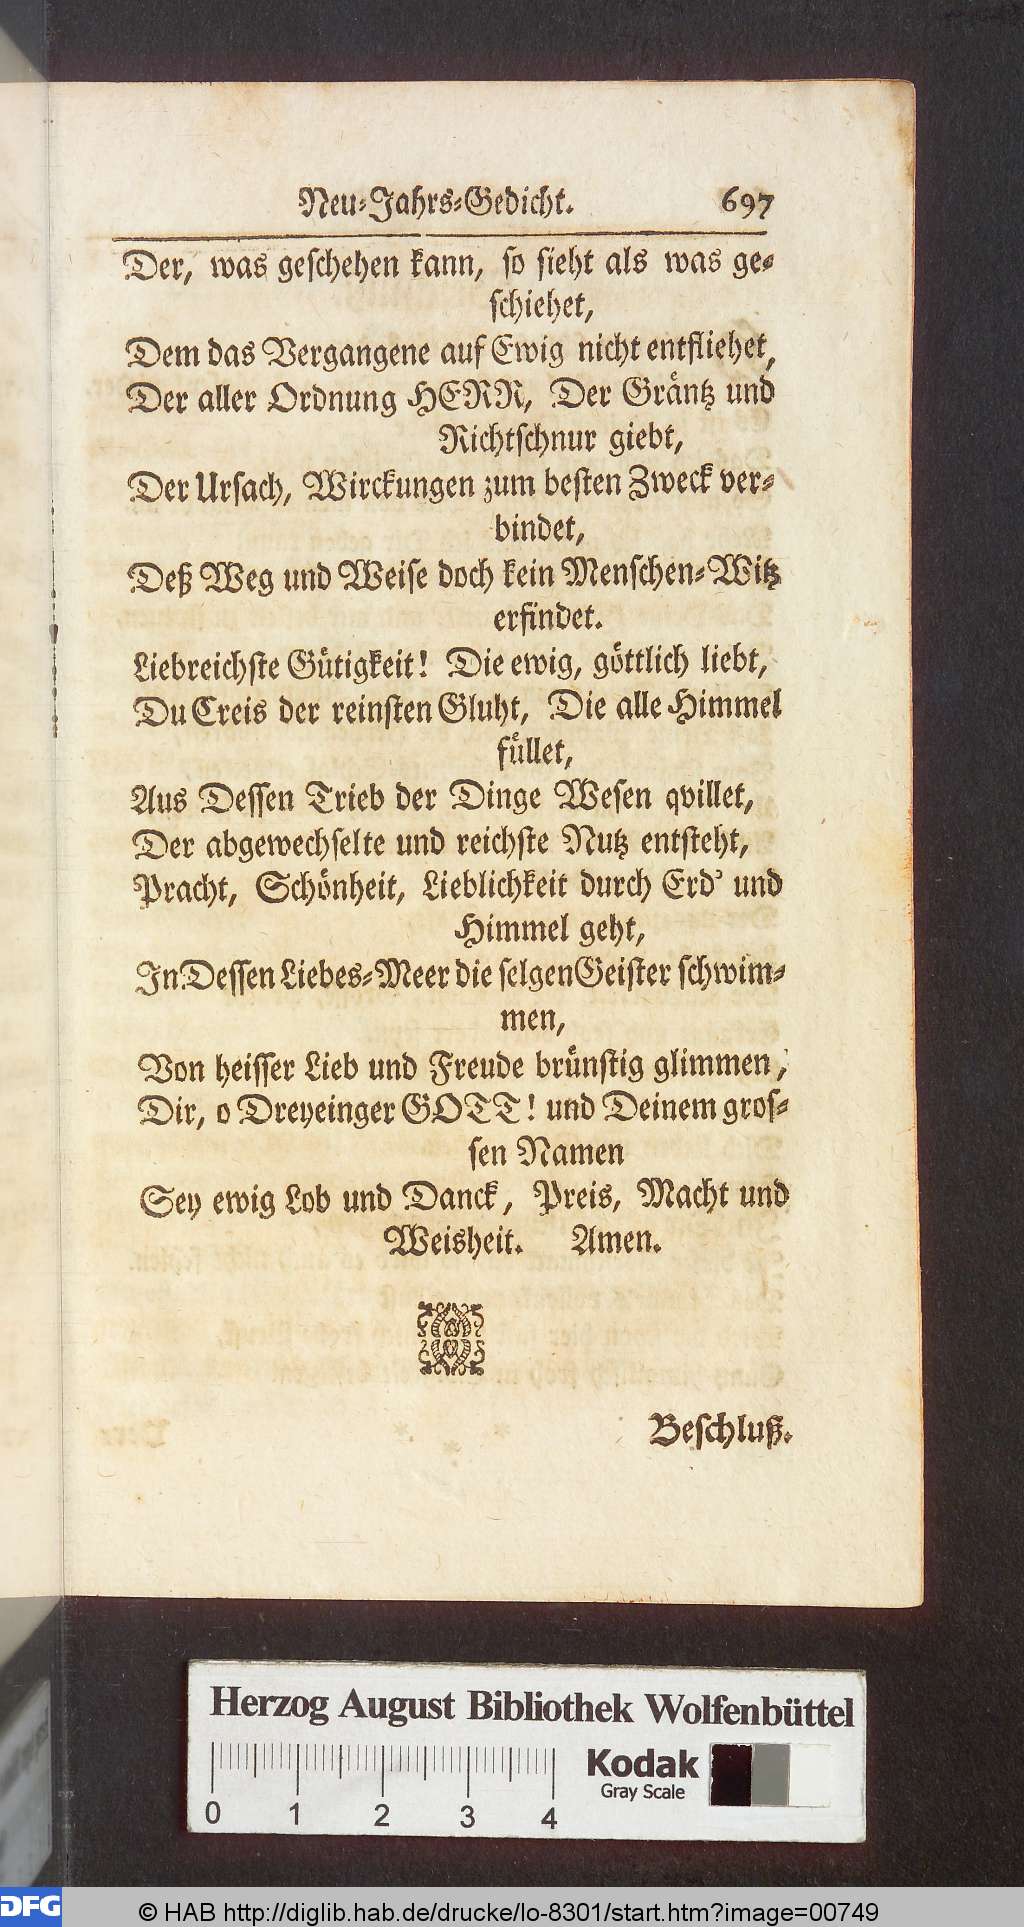 Neu-Jahrs-Gedicht. 697
Der, was geschehen kann, so sieht als was ge-
schiehet,
Dem das Vergangene auf Ewig nicht entfliehet,
Der aller Ordnung HERR, Der Gräntz und
Richtschnur giebt,
Der Ursach, Wirckungen zum besten Zweck ver-
bindet,
Deß Weg und Weise doch kein Menschen-Witz
erfindet.
Liebreichste Gütigkeit! Die ewig, göttlich liebt,
Du Creis der reinsten Gluht, Die alle Himmel
füllet,
Aus Dessen Trieb der Dinge Wesen qvillet,
Der abgewechselte und reichste Nutz entsteht,
Pracht, Schönheit, Lieblichkeit durch Erd' und
Himmel geht,
In Dessen Liebes-Meer die selgen Geister schwim-
men,
Von heisser Lieb und Freude brünstig glimmen,
Dir, o Dreyeinger GOTT! und Deinem gros-
sen Namen
Sey ewig Lob und Danck, Preis, Macht und
Weisheit. Amen.
Beschluß.
Herzog August Bibliothek Wolfenbüttel
Kodak
Gray Scale
0 1 2 3 4
DFG
© HAB http://diglib.hab.de/drucke/lo-8301/start.htm?image=00749